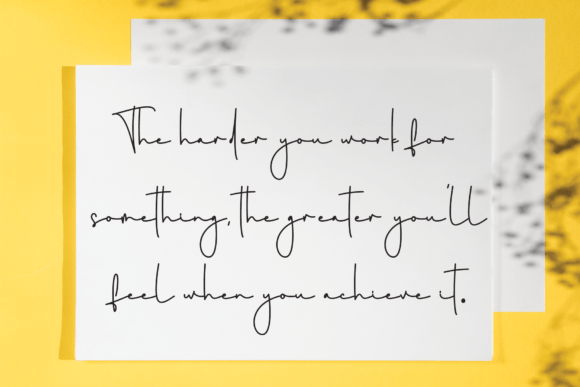 The harder you work for
something, the greater you'll
feel when you achieve it.